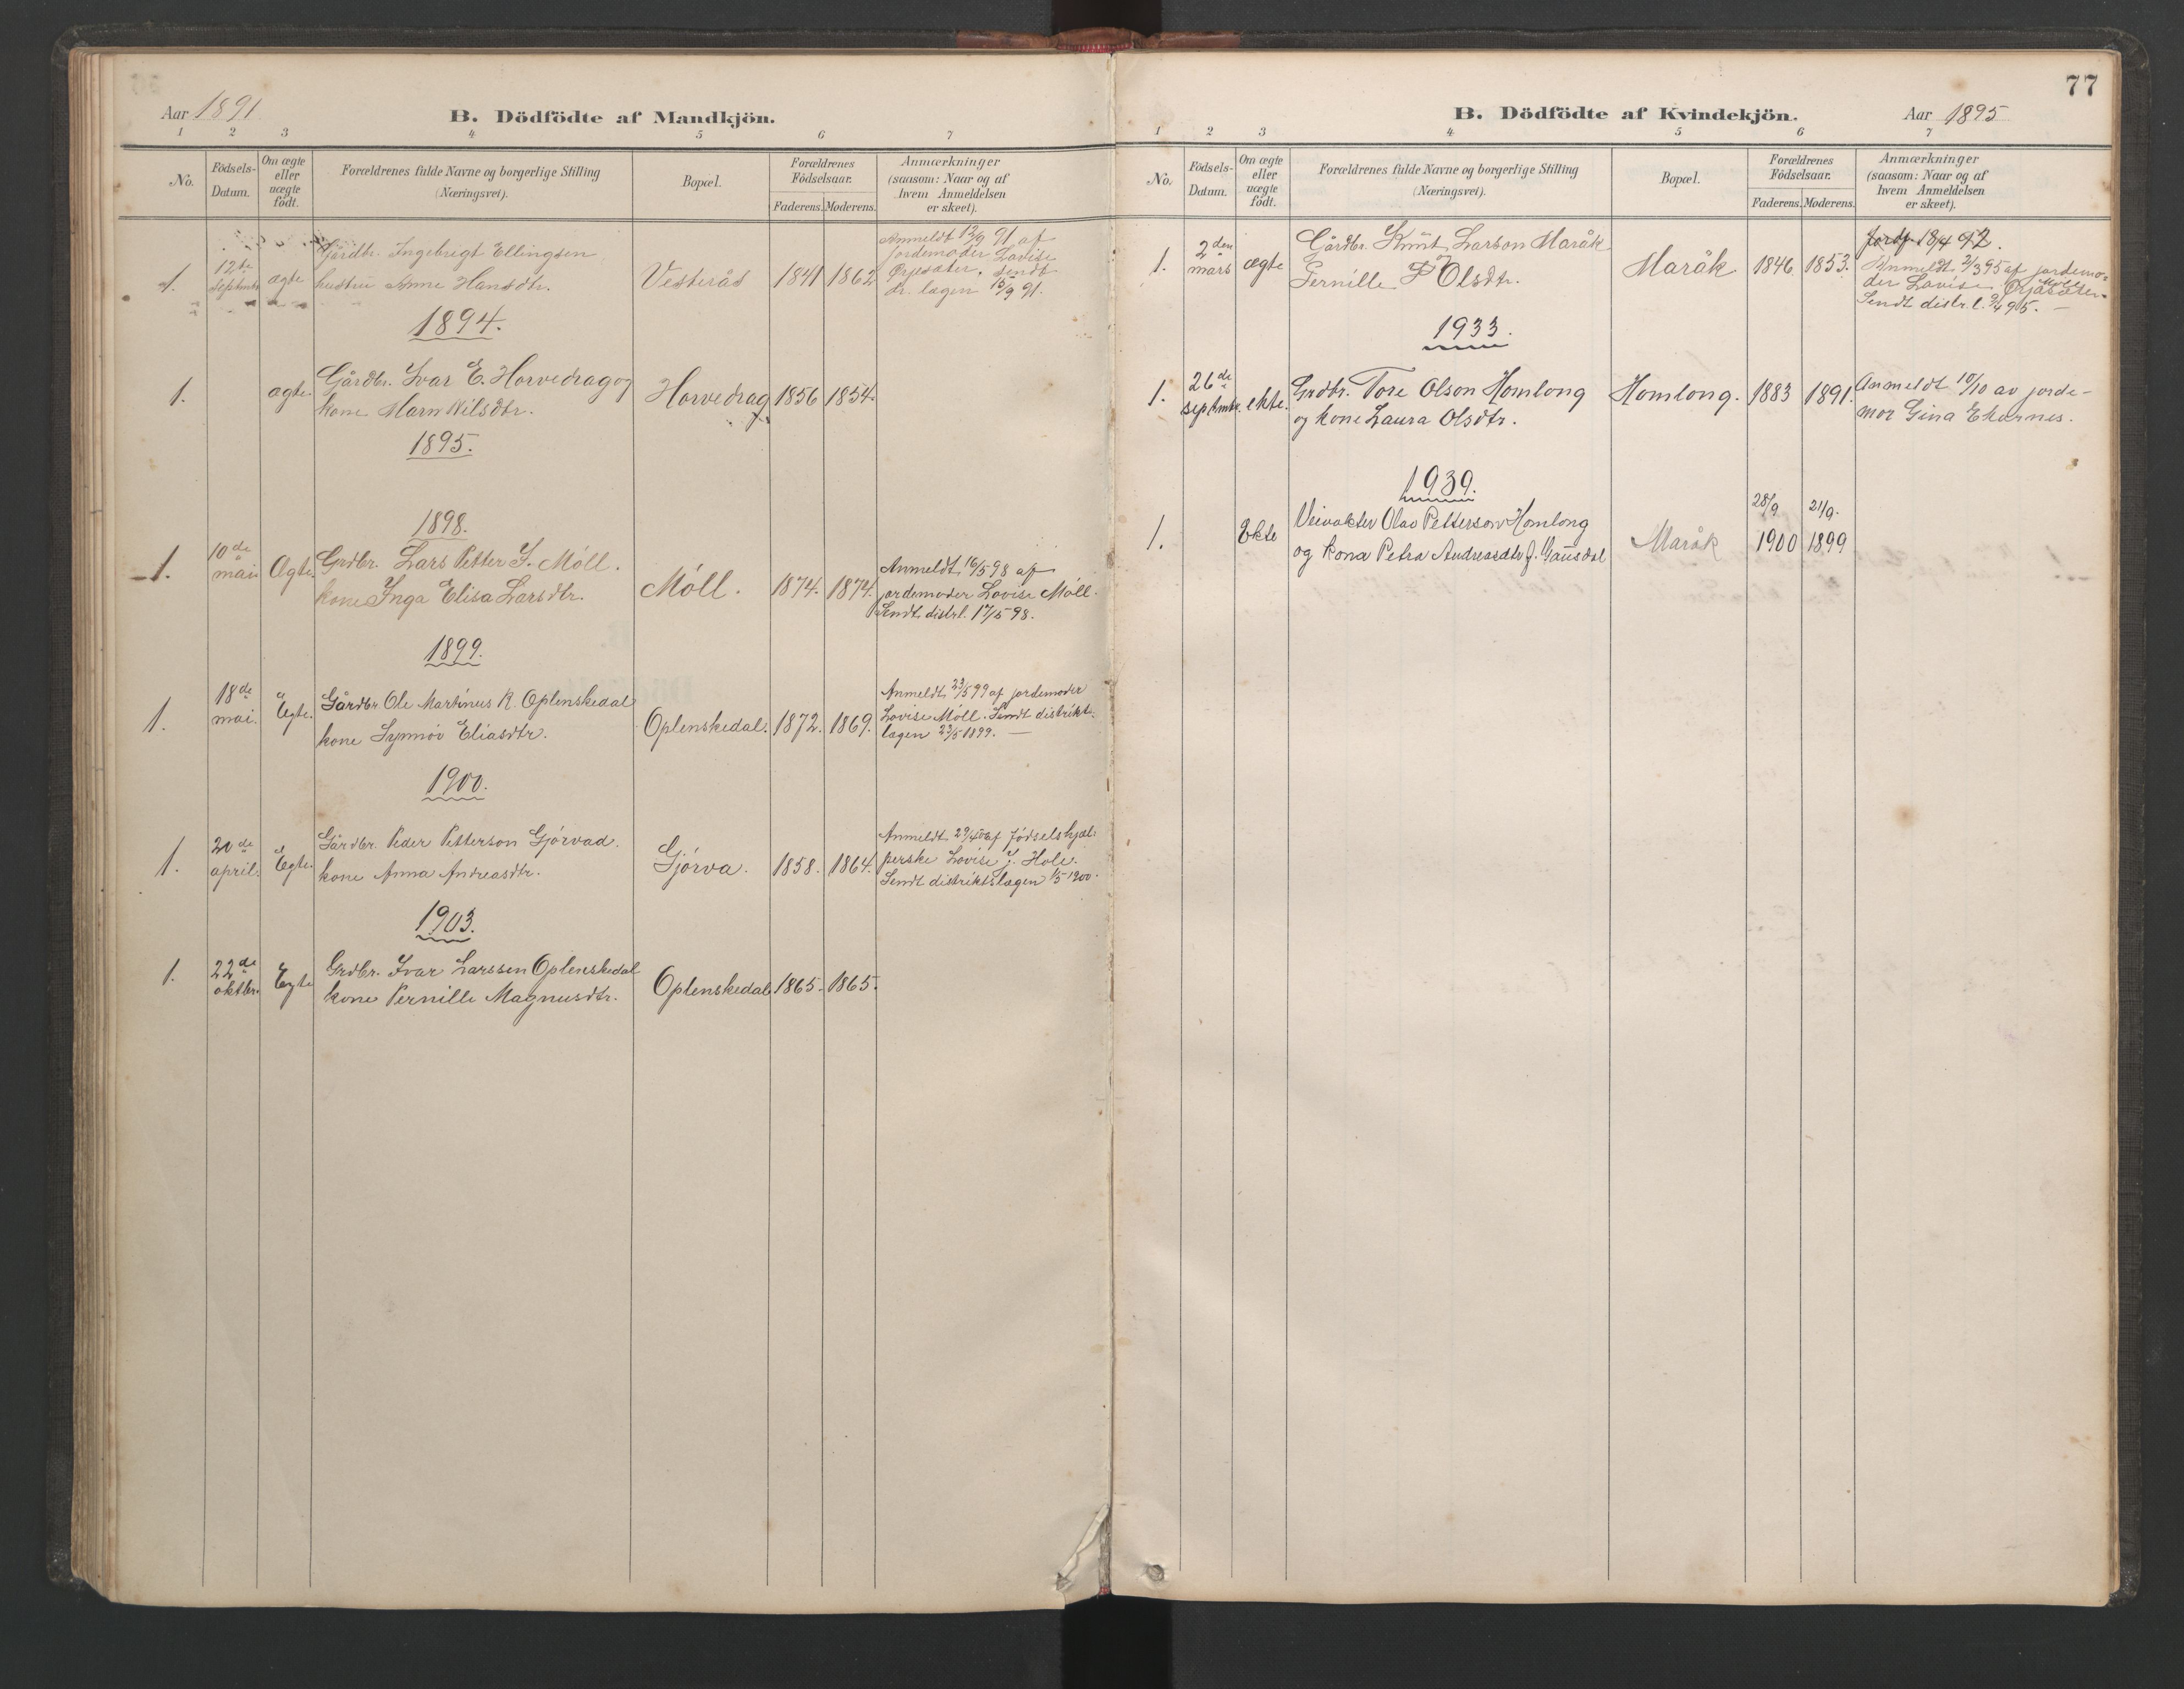 Aar 1891.
B. Dödfödte af Mandkjön.
1 2 3 4 5 6 7
No.
Födsels-
Datum.
Om ægte
eller
uægte
födt.
Forældrenes fulde Navne og borgerlige Stilling
(Næringsvei).
Bopæl.
Forældrenes
Födselsaar.
Faderens. Moderens.
Anmærkninger
(saasom: Naar og af
hvem Anmeldelsen
er skeet).
1.
12te
Septembr
ægte
Gårdbr. Ingebrigt Ellingsen
hustru Anne Hansdtr.
Vesterås
1841 1862
Anmeldt 12/9 91 af
Jordemoder Lovise
Ørjesæter. Sendt
dr. lægen 15/9 91.
1894.
1.
ægte.
Gårdbr. Ivar E. Horvedrag og
kone Marn Nilsdtr.
Horvedrag
1856 1854.
1895.
1898.
1.
10de
mai
Ægte.
Grdbr. Lars Petter I. Möll.
kone Inga Elisa Larsdtr.
Möll.
1874. 1874.
Anmeldt 16/5 98 af
jordemoder Lovise Möll.
Sendt distrl. 17/5 98.
1899.
1.
18de
mai.
Egte.
Gårdbr. Ole Martinus R. Oplenskedal
kone Synnöv Eliasdtr.
Oplenskedal.
1872. 1869.
Anmeldt 23/5 99 af jordemoder
Lovise Möll. Sendt distrikts-
lægen 23/5 1899. —
1900.
1.
20de
april.
Egte.
Gårdbr. Peder Petterson Gjörvad.
kone Anna Andreasdtr.
Gjörva.
1858. 1864.
Anmeldt 29/4 00 af födselshjæl-
perske Lovise J. Hole.
Sendt distriktslægen 1/5 1900.
1903.
1.
22de
oktbr.
Egte
Grdbr. Ivar Larssen Oplenskedal
kone Pernille Magnusdtr.
Oplenskedal
1865. 1865.
77
B. Dödfödte af Kvindekjön.
Aar 1895
1 2 3 4 5 6 7
No.
Födsels-
Datum.
Om ægte
eller
uægte
födt.
Forældrenes fulde Navne og borgerlige Stilling
(Næringsvei).
Bopæl.
Forældrenes
Födselsaar.
Faderens. Moderens.
Anmærkninger
(saasom: Naar og af
hvem Anmeldelsen
er skeet).
1.
2den
mars
ægte
Gårdbr. Knut Larson Maråk
og
Pernille P Olsdtr.
Maråk
1846 1853.
18/4 92.
Anmeldt 2/3 95 af jordemo-
der Lovise Möll Ørjasæter.
Sendt distr.l. 9/4 95. —
1933.
1.
26de
septembr.
ekte.
Grdbr. Tore Olson Homlong
og kone Laura Olsdtr.
Homlong.
1883 1891.
Anmeldt 10/10 av jorde-
mor Gina Ekornes.
1939.
1.
Ekte
Veivakter Olav Petterson Homlong
og kona Petra Andreasdtr f. Gausdal
Maråk
28/9 21/9.
1900 1899